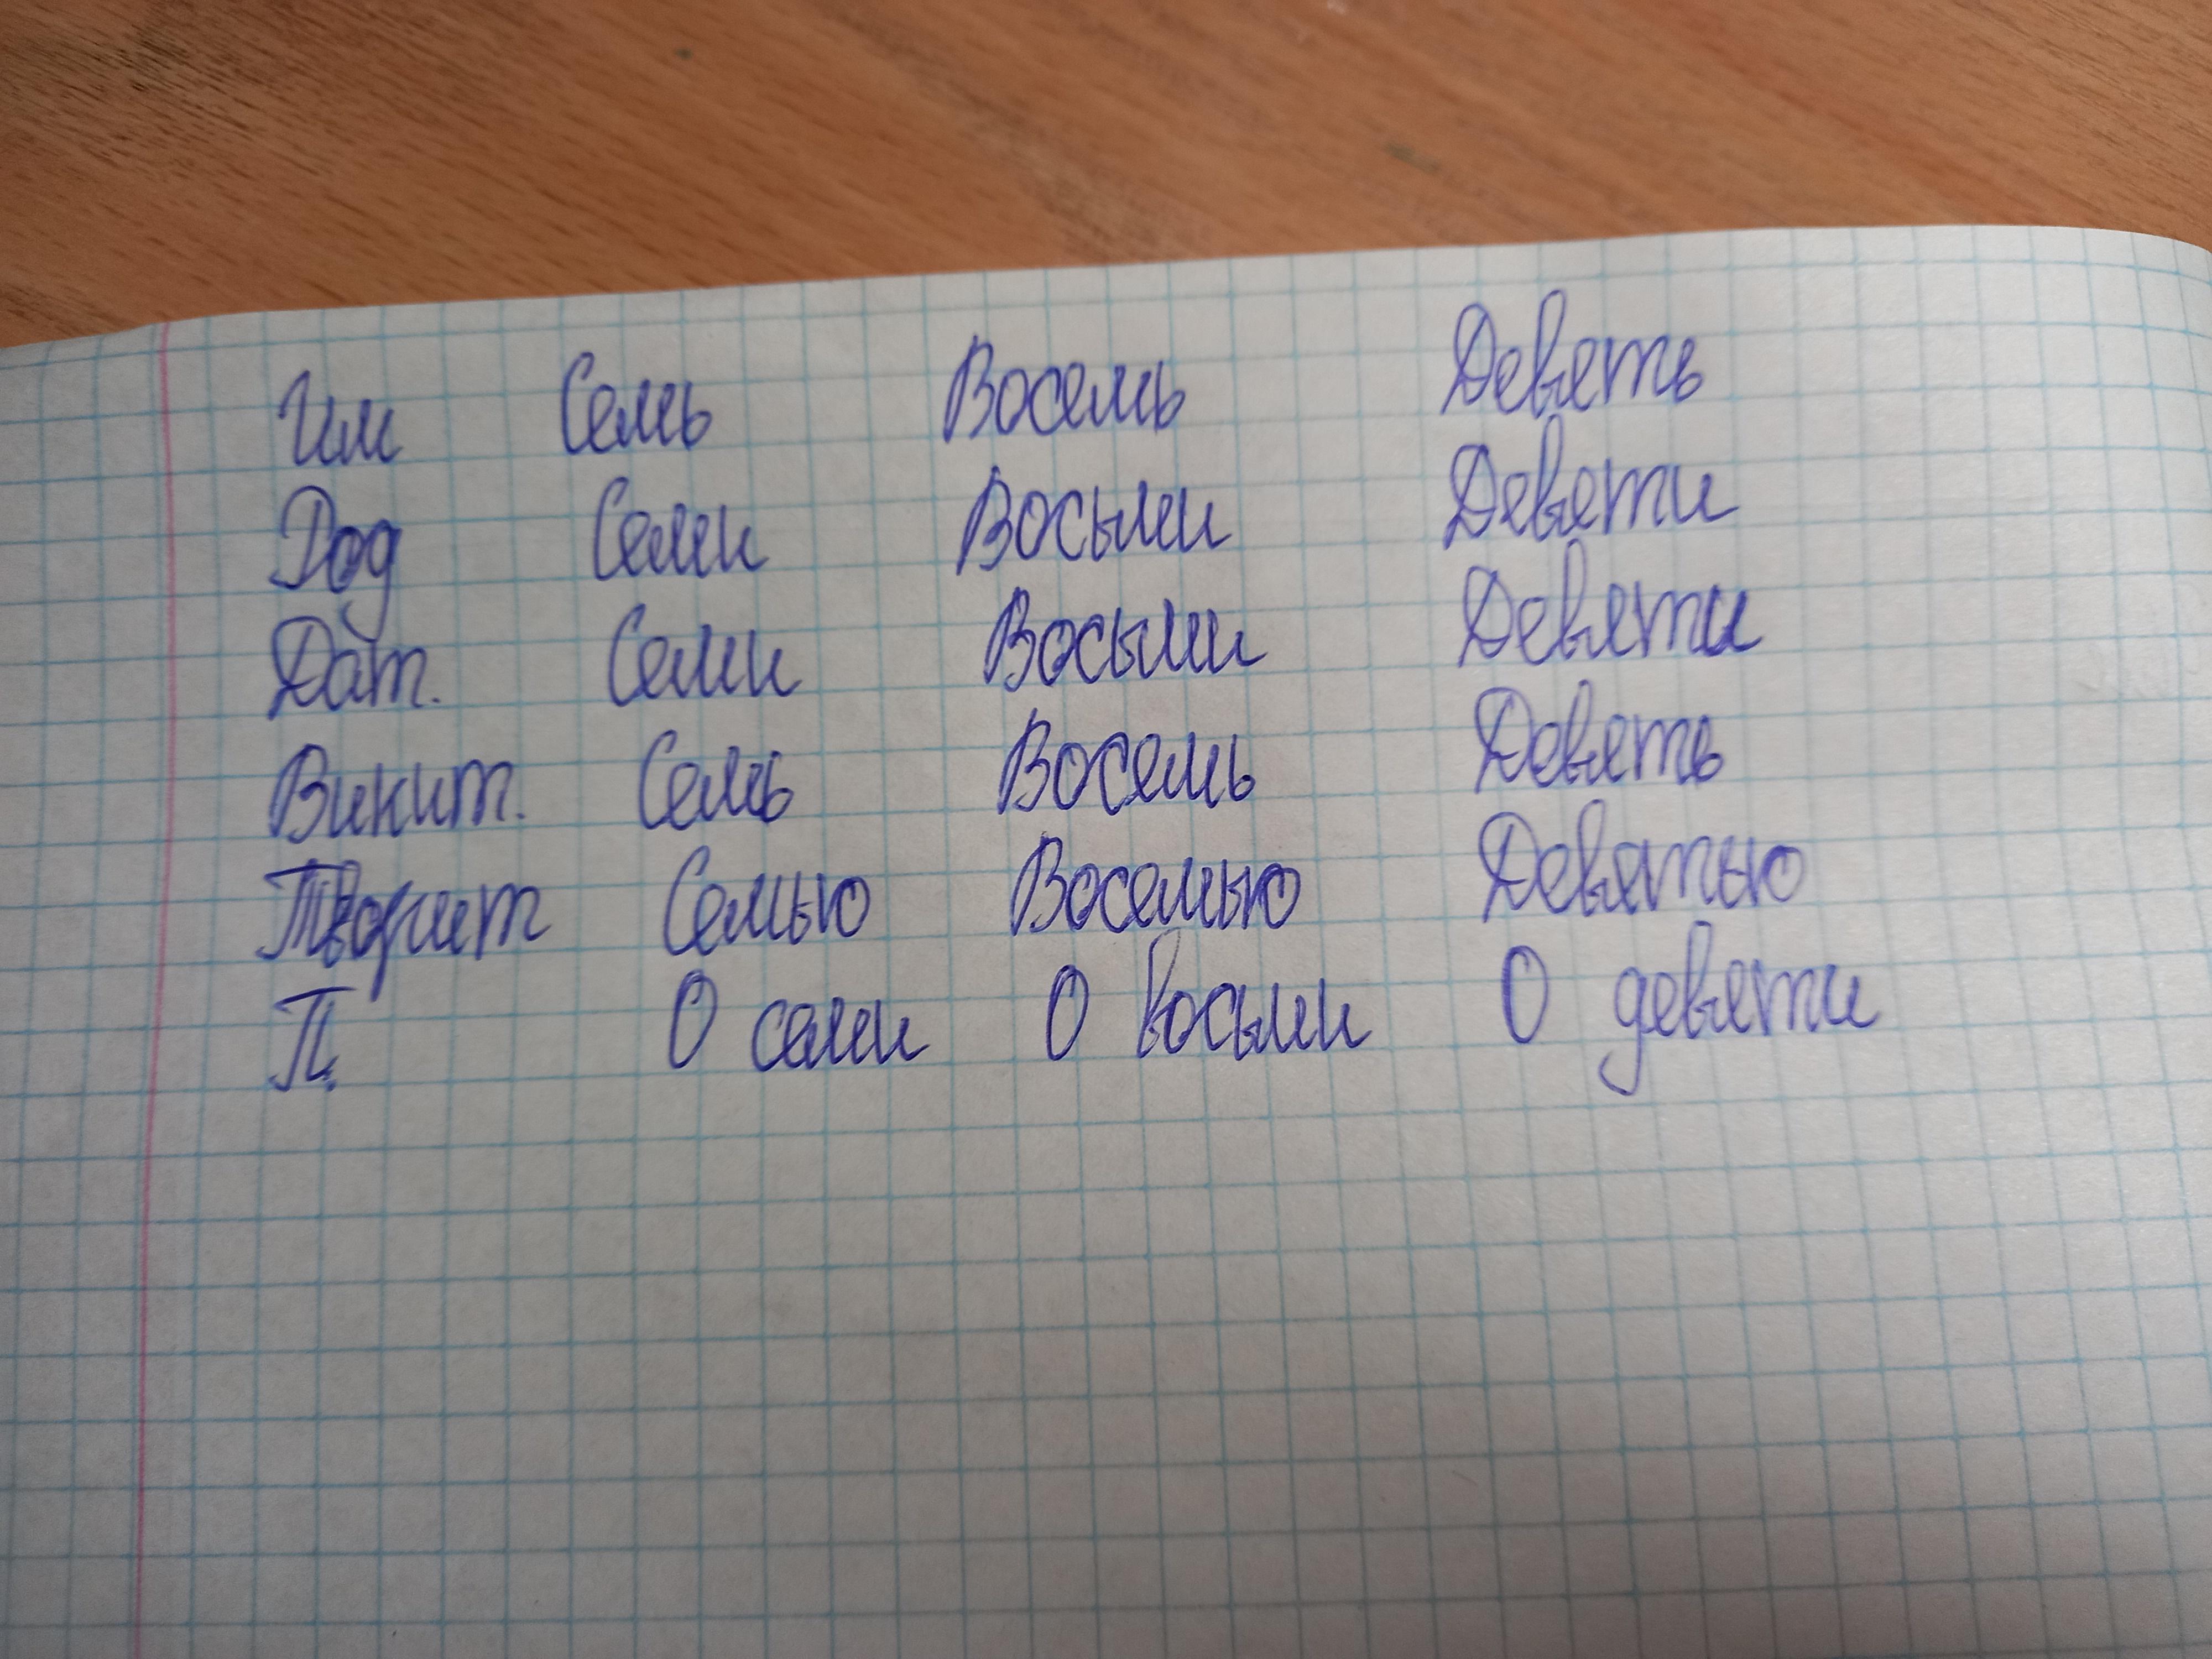 Им Семь Восемь Девять
Род Семи Восьми Девяти
Дат. Семи Восьми Девяти
Винит. Семь Восемь Девять
Творит Семью Восемью Девятью
П. О семи О восьми О девяти